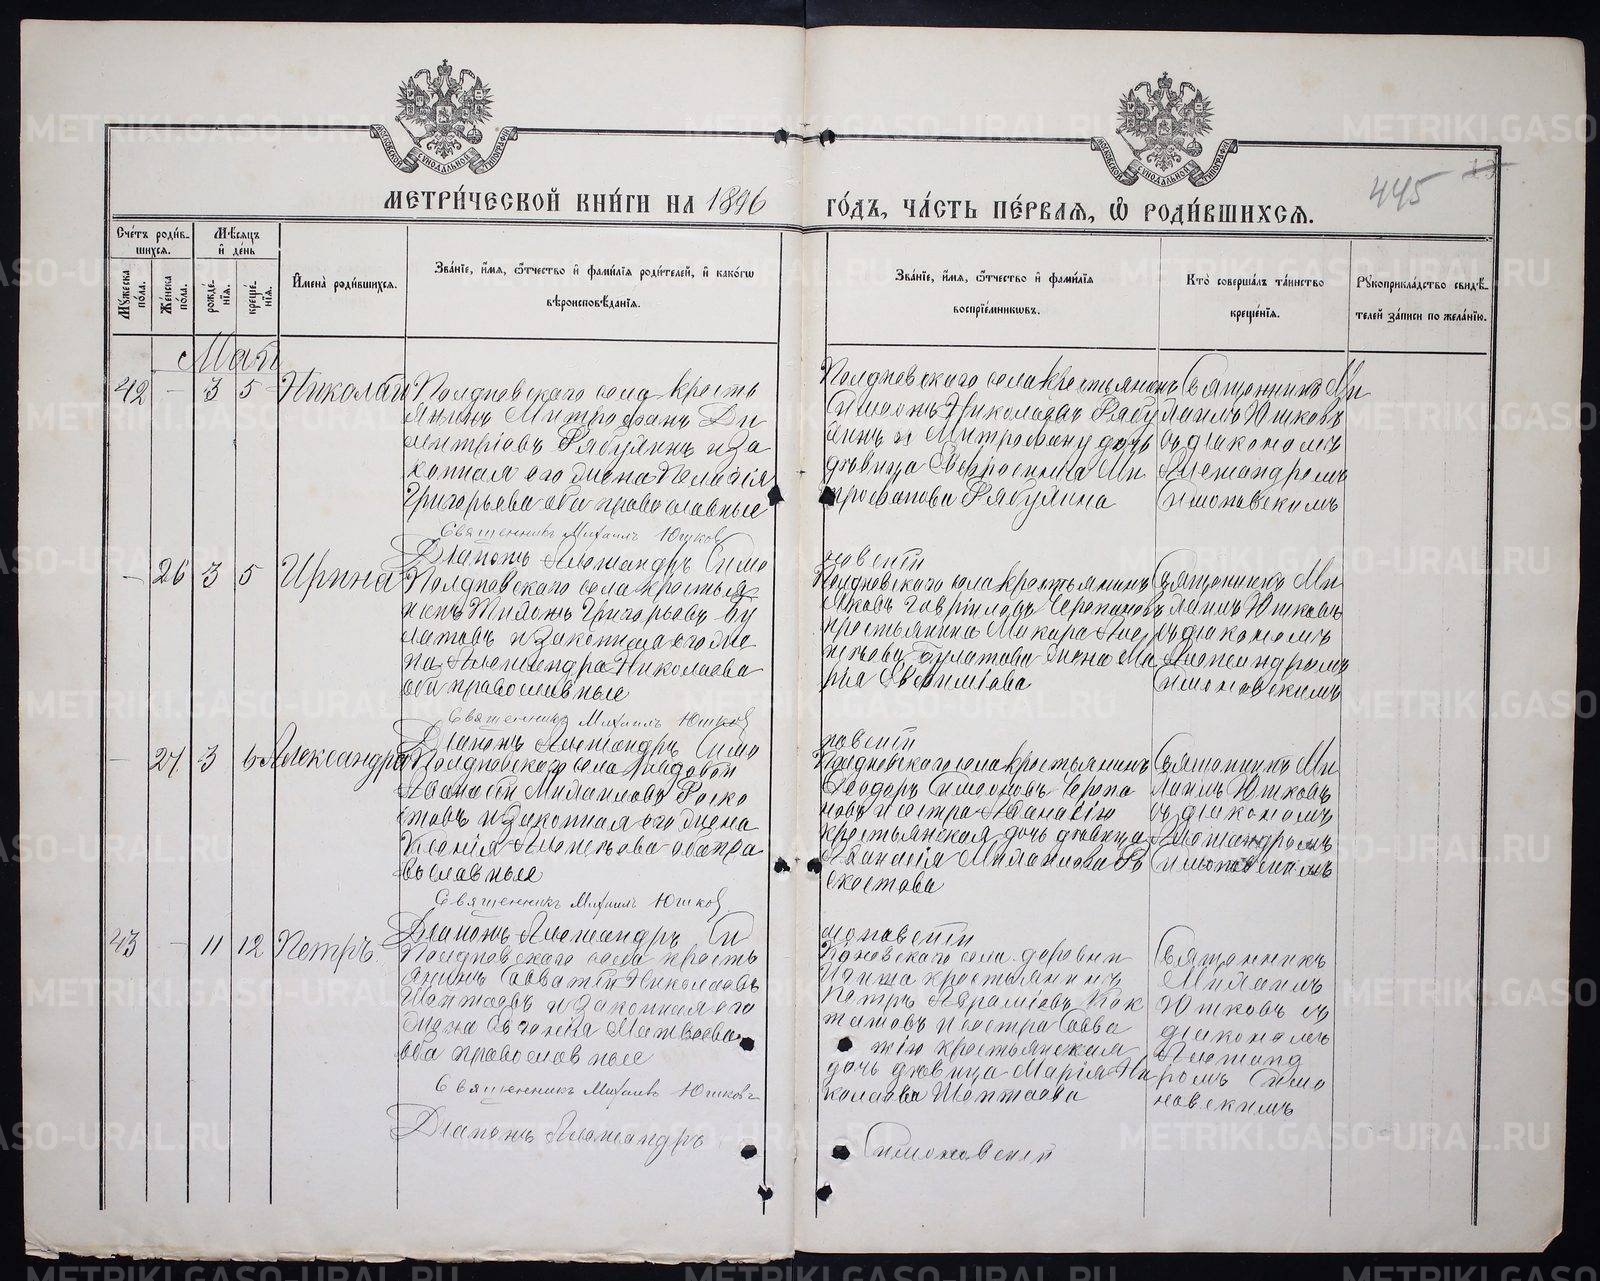 МЕТРИ́ЧЕСКОЙ КНИ́ГИ НА 1896 ГО́ДЪ, ЧА́СТЬ ПЕ́РВАЯ, Ѿ РОДИ́ВШИХСЯ.
445
Сче́тъ роди́в-
шихся.
Мѣ́сяцъ
и де́нь
Му́жеска по́ла.
Же́нска по́ла.
рожде́-нія.
креще́-нія.
Имена̀ роди́вшихся.
Зва́ніе, и́мя, ѻ́тчество и фами́лія роди́телей, и како́гѡ
вѣроисповѣ́данія.
Зва́ніе, и́мя, ѻ́тчество и фами́лія
воспріе́мниковъ.
Кто̀ соверша́лъ та́инство
креще́нія.
Рꙋкоприкла́дство свидѣ́-
телей за́писи по жела́нію.
Май
42 - 3 5 Николай
Полдневскаго села кресть
янинъ Митрофанъ Ди
митріевъ Рябухинъ и за
конная его жена Пелагія
Григорьева оба православные
Священникъ Михаилъ Юшков
Діаконъ Александръ Симо
новскій
Полдневскаго села крестьянинъ
Симеонъ Николаевъ Рябу
и Митрофану дочь
дѣвица Евфросинія Ми
трофанова
Священникъ Ми
хаилъ Юшковъ
съ діакономъ
Александромъ
Симоновскимъ
- 26 3 5 Ирина
Полдневскаго села крестья
нинъ Григорьевъ Бу
латовъ и законная его же
на Александра Николаева
оба православные
Священникъ Михаилъ Юшков
Діаконъ Александръ Симо
новскій
Полдневскаго села крестьянинъ
Яковъ Гавріиловъ Черепановъ
крестьянина Макара
Булатова жена Ма
рія Евфиміева
Священникъ Ми
хаилъ Юшковъ
съ діакономъ
Александромъ
Симоновскимъ
- 27 3 6 Александра
Полдневскаго села
Аѳанасій Михаиловъ
и законная его жена
Ксенія Алексѣева оба пра
вославные
Священникъ Михаилъ Юшков
Діаконъ Александръ Си
моновскій
Полдневскаго села крестьянинъ
Ѳеодоръ Симеоновъ Черепа
новъ и сестра Аѳанасію
крестьянская дочь дѣвица
Михаилова
Священникъ Ми
хаилъ Юшковъ
съ діакономъ
Александромъ
Симоновскимъ
43 - 11 12 Петръ
Полдневскаго села кресть
янинъ Савватій Николаевъ
и законная его
жена Евгенія Матвѣева
оба православные
Священникъ Михаилъ Юшковъ
Діаконъ Александръ
Симоновскій
села деревни
крестьянинъ
Петръ Авраміевъ
и сестра Савва
тію крестьянская
дочь дѣвица Марія Ни
колаева
Священникъ
Михаилъ
Юшковъ съ
діакономъ
Александ
ромъ Симо
новскимъ